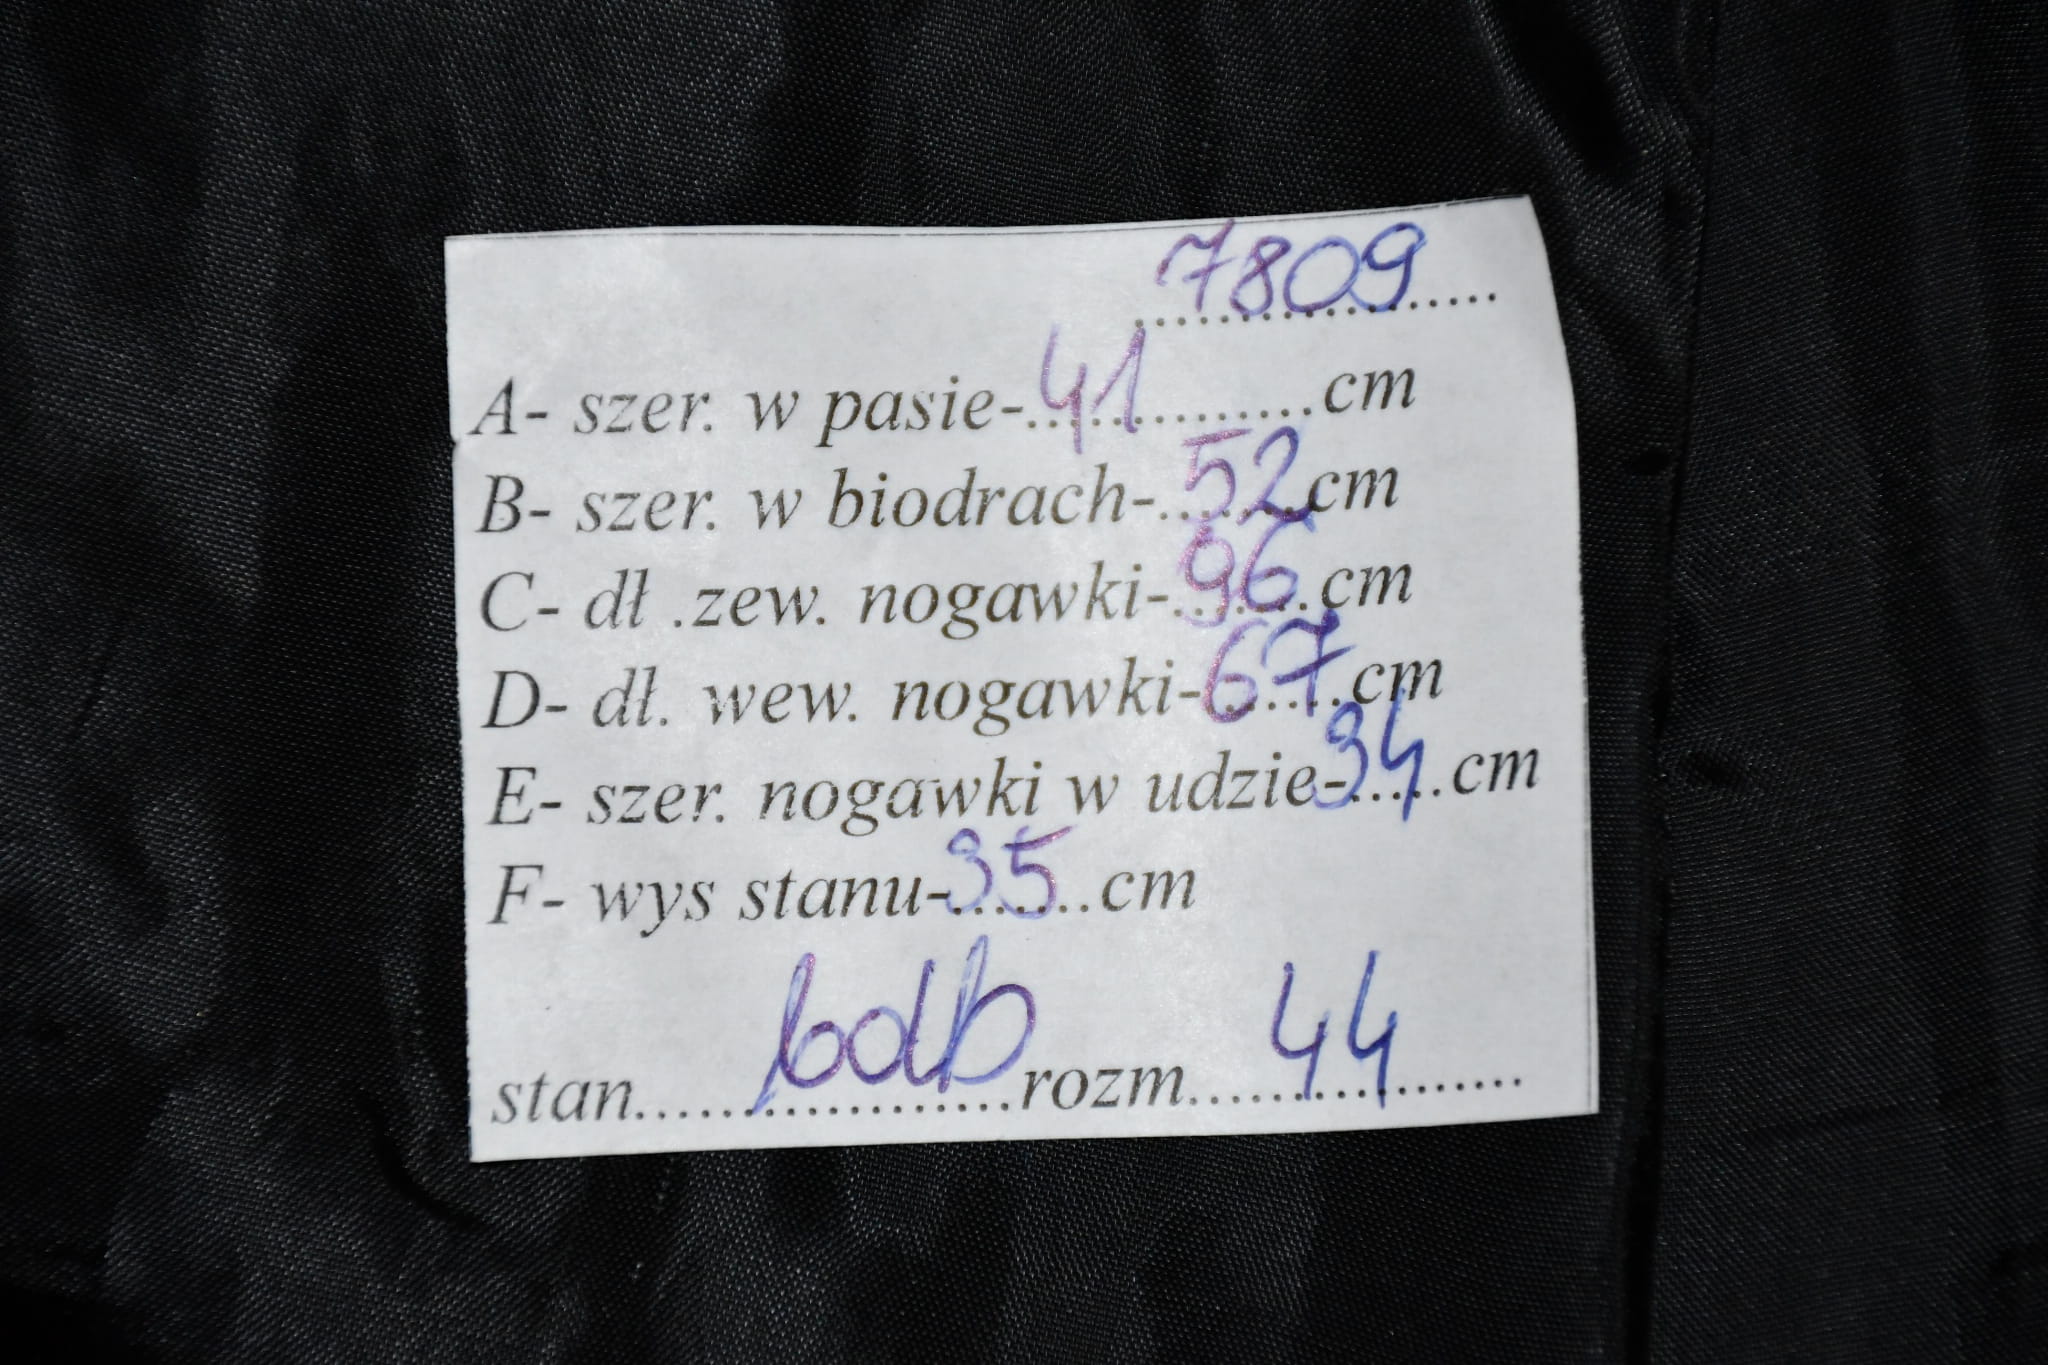 7809
A- szer. w pasie-41 cm
B- szer. w biodrach-52 cm
C- dł .zew. nogawki-96 cm
D- dł. wew. nogawki-67 cm
E- szer. nogawki w udzie-34 cm
F- wys stanu-35 cm
stan bdb rozm 44